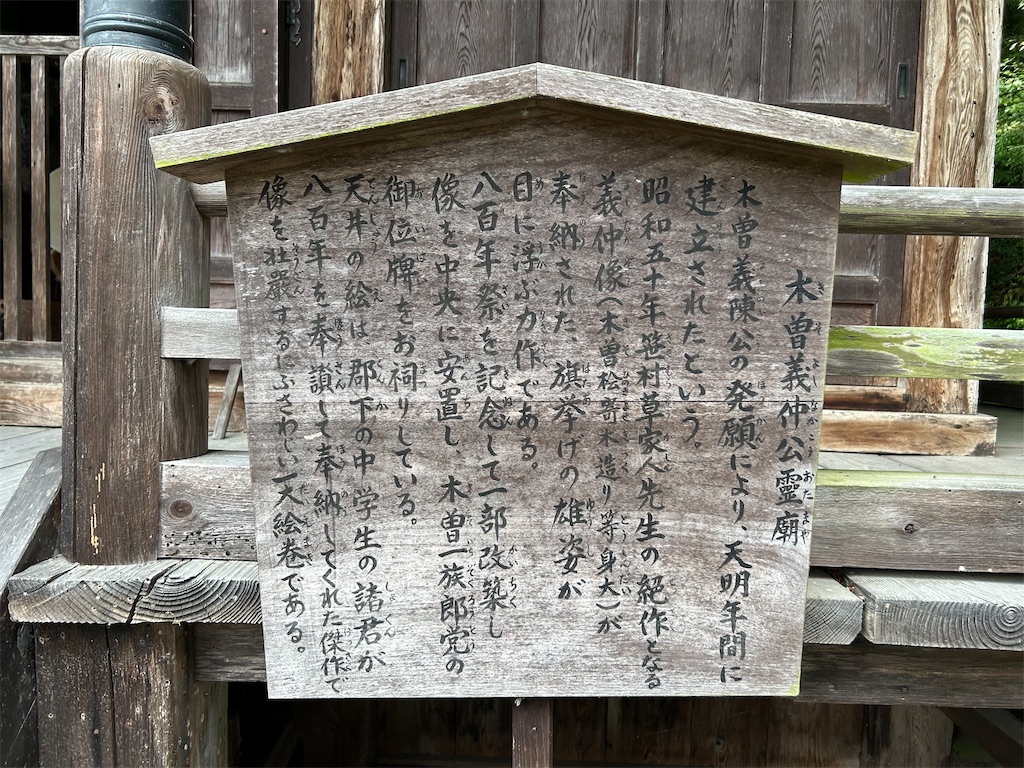 木曽義仲公霊廟
木曽義陳公の発願により、天明年間に
建立されたという。
昭和五十年笹村草家人先生の絶作となる
義仲像(木曽桧寄木造り等身大)が
奉納された、旗挙げの雄姿が
目に浮ぶ力作である。
八百年祭を記念して一部改築し
像を中央に安置し、木曽一族郎党の
御位牌をお祠りしている。
天井の絵は郡下の中学生の諸君が
八百年を奉讃して奉納してくれた傑作で
像を荘厳するにふさわしい一大絵巻である。